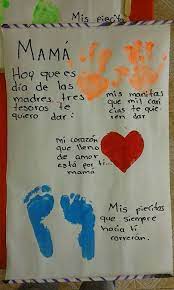 Mis piecit
MAMÁ
Hoy que es
día de las
madres tres
tesoros te
quiero dar:
mis manitas
que mil cari
cias te quie
ren dar
mi corazón
que lleno
de amor
está por ti...
mamá
Mis piecitos
que siempre
hacia ti
correrán.